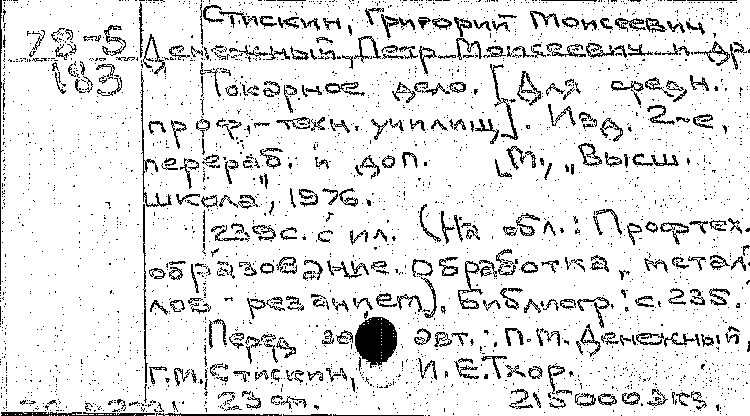 Стискин, Григорий Моисеевич,
78-5 Денежный, Петр Моисеевич и др
183 Токарное дело. [Для средн.
проф.-техн. училищ]. Изд. 2-е,
перераб. и доп. М., „Высш.
школа", 1976.
239с. с ил. (На обл.: Профтех.
образование. Обработка метал
лов резанием). Библиогр.: с. 235.
Перед авт.: П.М. Денежный,
Г.М. Стискин, И.Е. Тхор.
23 см. 215000экз.